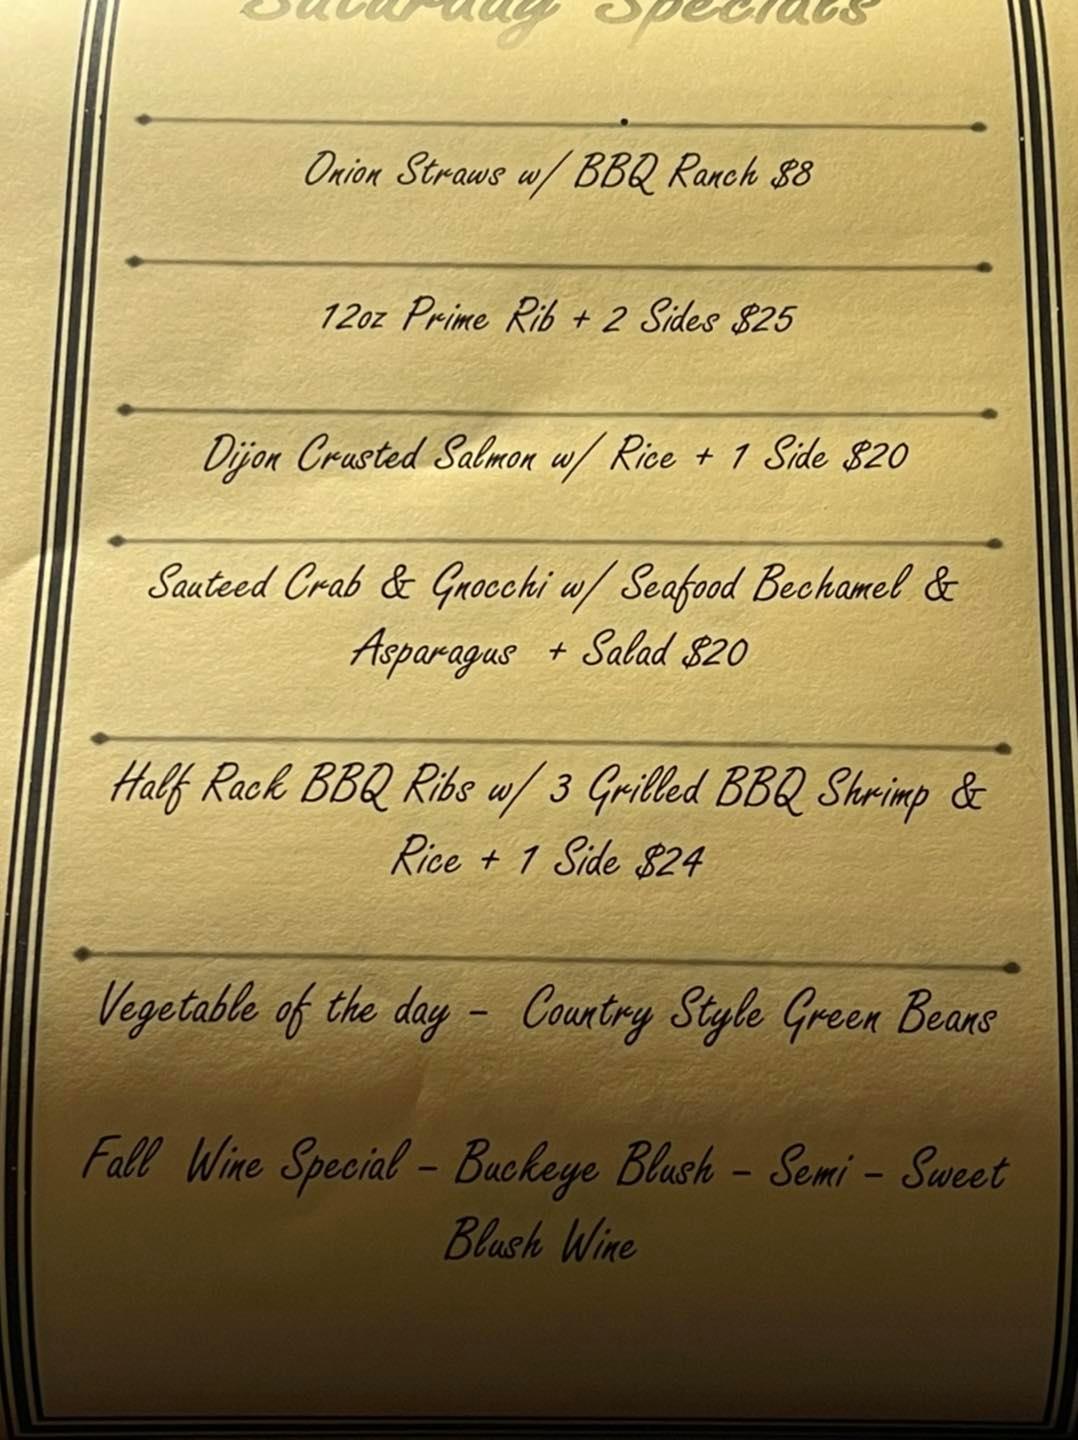 Saturday Specials
Onion Straws w/ BBQ Ranch $8
12oz Prime Rib + 2 Sides $25
Dijon Crusted Salmon w/ Rice + 1 Side $20
Sauteed Crab & Gnocchi w/ Seafood Bechamel &
Asparagus + Salad $20
Half Rack BBQ Ribs w/ 3 Grilled BBQ Shrimp &
Rice + 1 Side $24
Vegetable of the day - Country Style Green Beans
Fall Wine Special - Buckeye Blush - Semi - Sweet
Blush Wine